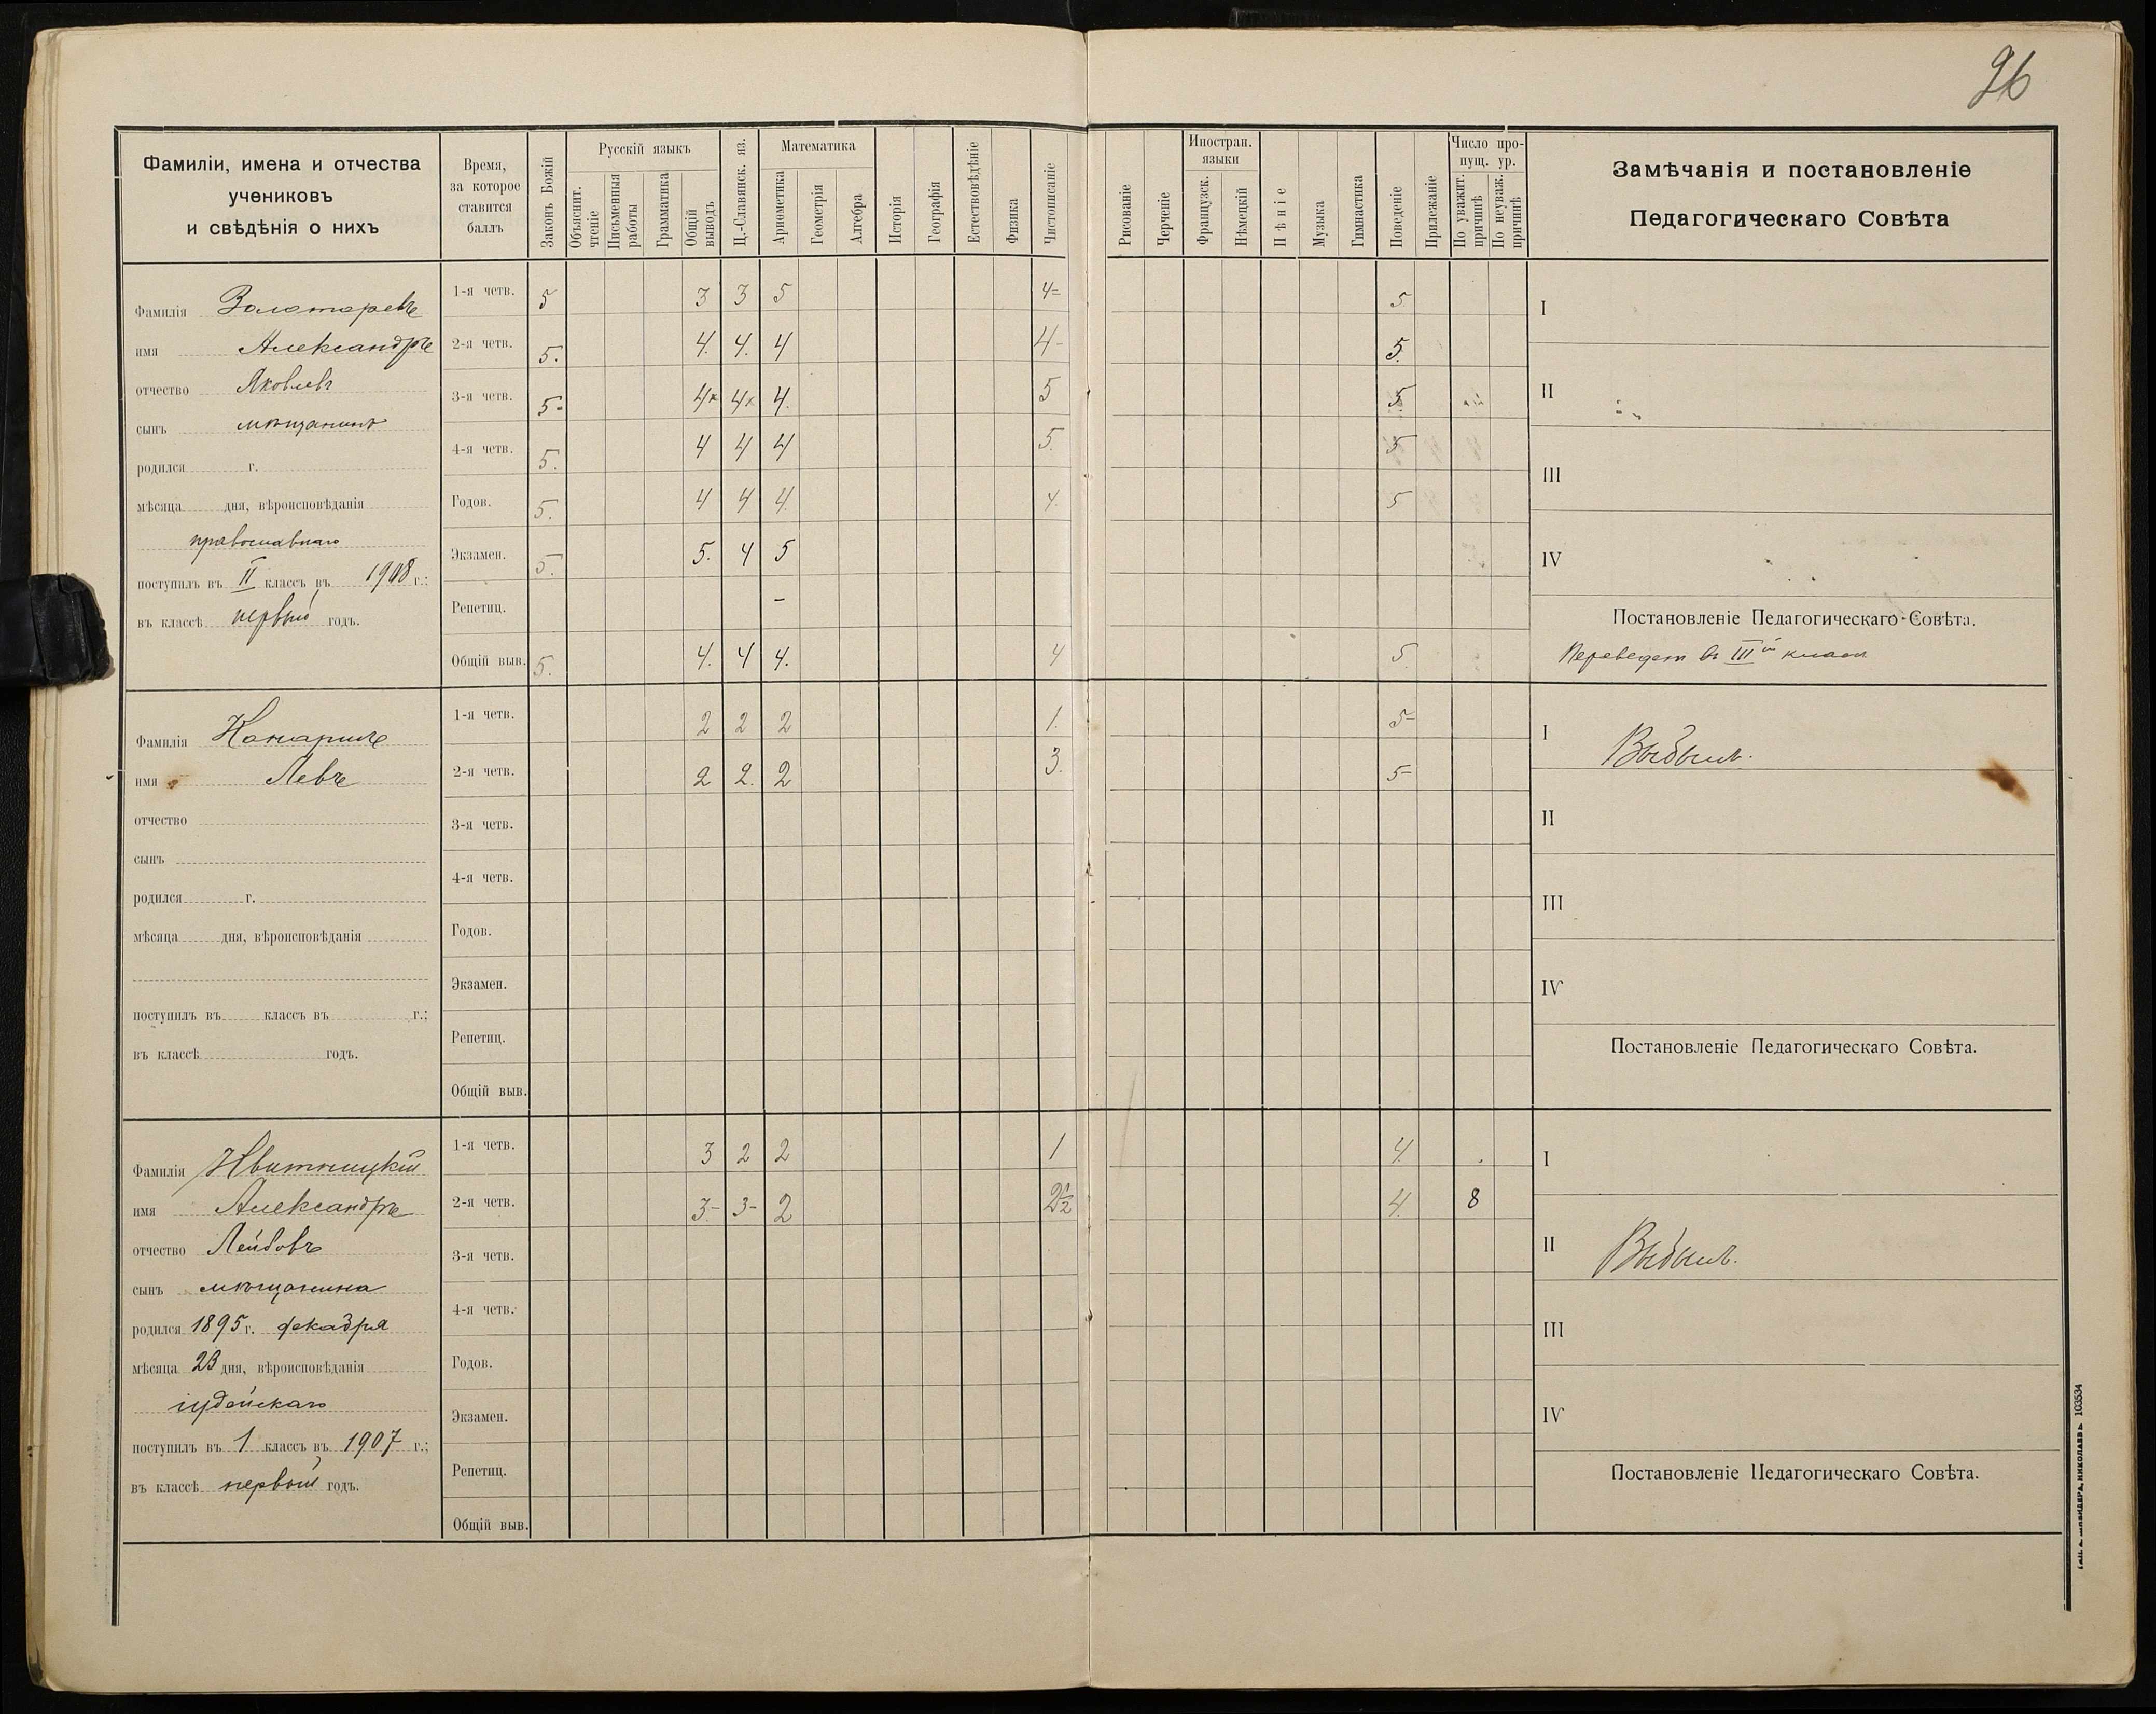 96
Фамиліи, имена и отчества
учениковъ
и свѣдѣнія о нихъ
Время,
за которое
ставится
баллъ
Законъ Божій
Русскій языкъ
Объяснит. чтеніе
Письменныя работы
Грамматика
Общій выводъ
Ц.-Славянск. яз.
Математика
Ариѳметика
Геометрія
Алгебра
Исторія
Географія
Естествовѣдѣніе
Физика
Чистописаніе
Рисованіе
Черченіе
Иностран. языки
Французск.
Нѣмецкій
Пѣніе
Музыка
Гимнастика
Поведеніе
Прилежаніе
Число пропущ. ур.
По уважит. причинѣ
По неуваж. причинѣ
Замѣчанія и постановленіе
Педагогическаго Совѣта
Фамилія Золотаревъ
имя Александръ
отчество Яковлевъ
сынъ мѣщанинъ
родился г.
мѣсяца дня, вѣроисповѣданія
православнаго
поступилъ въ II классъ въ 1908 г.;
въ классѣ первый годъ.
1-я четв. 5 3 3 5 4= 5
2-я четв. 5. 4. 4. 4 4- 5.
3-я четв. 5- 4x 4x 4. 5 5
4-я четв. 5. 4 4 4 5. 5
Годов. 5. 4 4 4. 4. 5
Экзамен. 5. 5. 4 5
Репетиц. -
Общій выв. 5. 4. 4 4. 4 5.
I
II
III
IV
Постановленіе Педагогическаго Совѣта.
Переведен въ III й класъ
Фамилія
имя Левъ
отчество
сынъ
родился г.
мѣсяца дня, вѣроисповѣданія
поступилъ въ классъ въ г.;
въ классѣ годъ.
1-я четв. 2 2 2 1. 5-
2-я четв. 2 2. 2 3. 5-
3-я четв.
4-я четв.
Годов.
Экзамен.
Репетиц.
Общій выв.
I Выбылъ.
II
III
IV
Постановленіе Педагогическаго Совѣта.
Фамилія
имя Александръ
отчество Лейбовъ
сынъ мѣщанина
родился 1895 г. декабря
мѣсяца 23 дня, вѣроисповѣданія
іудейскаго
поступилъ въ 1 классъ въ 1907 г.;
въ классѣ первый годъ.
1-я четв. 3 2 2 1 4.
2-я четв. 3- 3- 2 2½ 4. 8
3-я четв.
4-я четв.
Годов.
Экзамен.
Репетиц.
Общій выв.
I
II Выбылъ.
III
IV
Постановленіе Педагогическаго Совѣта.
НИКОЛАЕВЪ 103534